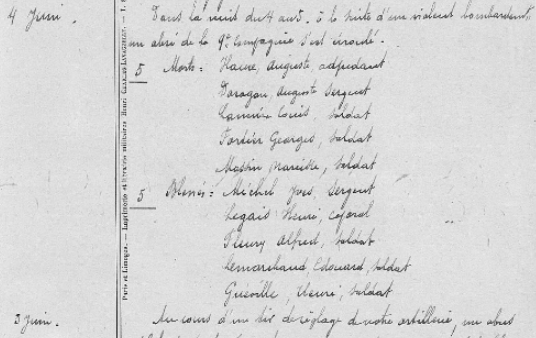 4 Juin.
Dans la nuit du 4 au 5, à la suite d'un violent bombardement,
un abri de la 9e Compagnie s'est écroulé.
5 Morts : Haure, Auguste, adjudant
Auguste Sergent
Louis, Soldat
Tordier Georges, Soldat
Massin Soldat
5 Blessés : Michel Yves Sergent
Legais Henri, caporal
Fleury Alfred, Soldat
Lemarchand Edouard, Soldat
Gueville, Henri, Soldat
Juin.
Au cours d'un tir de réglage de notre artillerie, un obus
Paris et Limoges. — Imprimerie et librairie militaires Henri CHARLES-LAVAUZELLE.